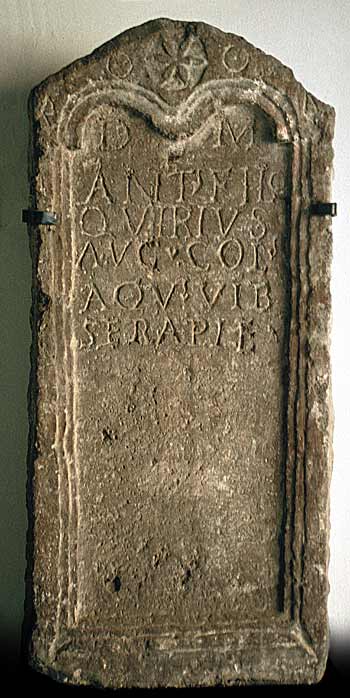 D M
ANT
QVIRIVS
AVG · COL
AQV · VIB
SERAPIE